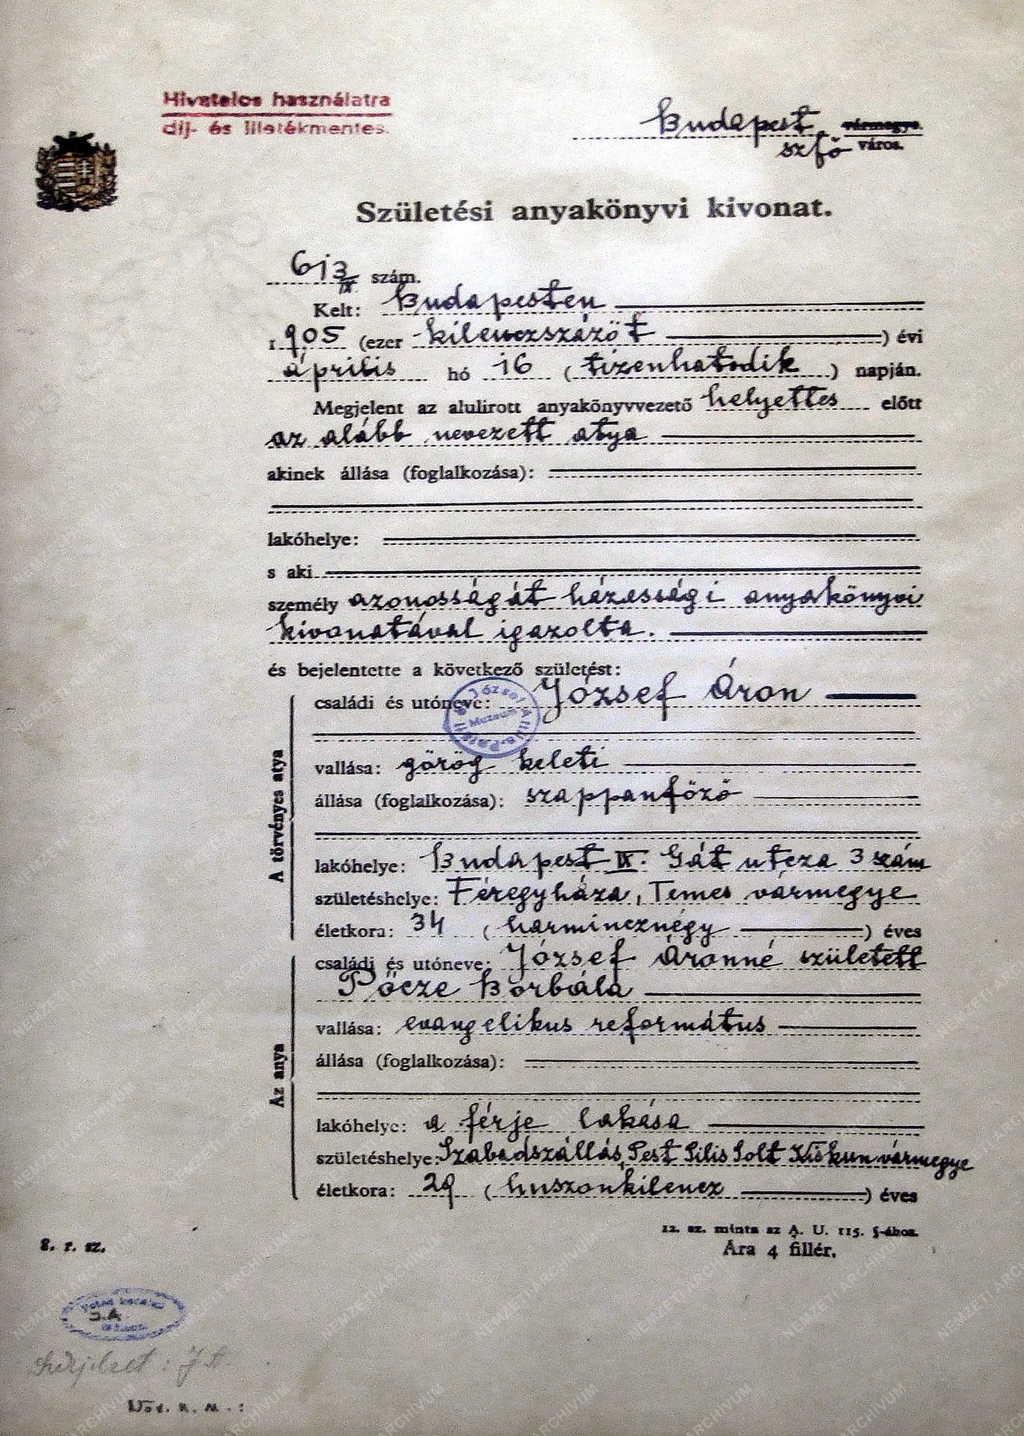 Hivatalos használatra
díj- és illetékmentes.
Budapest vármegye.
szfő város.
Születési anyakönyvi kivonat.
613/IX szám.
Kelt: Budapesten
1905 (ezer kilenczszázöt) évi
április hó 16 (tizenhatodik) napján.
Megjelent az alulirott anyakönyvvezető helyettes előtt
az alább nevezett atya
akinek állása (foglalkozása):
lakóhelye:
s aki
személy azonosságát házassági anyakönyvi
kivonatával igazolta.
és bejelentette a következő születést:
A törvényes atya
családi és utóneve: József Áron
József Attila
Múzeum
vallása: görög keleti
állása (foglalkozása): szappanfőző
lakóhelye: Budapest IX. Gát utcza 3 szám
születéshelye: Féregyháza, Temes vármegye
életkora: 34 (harmincznégy) éves
Az anya
családi és utóneve: József Áronné született
Pőcze Borbála
vallása: evangelikus református
állása (foglalkozása):
lakóhelye: a férje lakása
születéshelye: Szabadszállás, Pest Pilis Solt Kiskun vármegye
életkora: 29 (huszonkilencz) éves
12. sz. minta az A. U. 115. §-ához.
Ára 4 fillér.
8. r. sz.
J.A.
NEMZETI ARCHIVUM